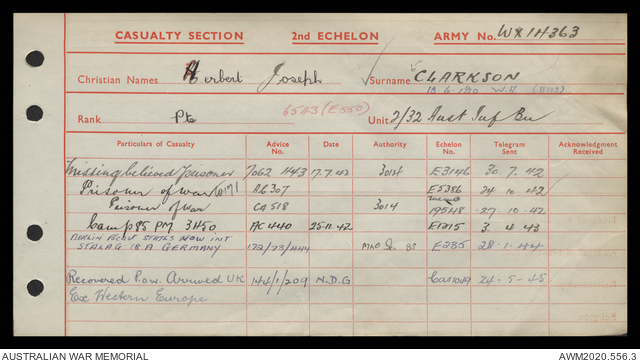 CASUALTY SECTION 2nd ECHELON ARMY No. WX14363
Christian Names Herbert Joseph Surname CLARKSON
Rank Pte 6543 (E550) Unit 2/32 Aust Inf Bn
Particulars of Casualty Advice No. Date Authority Echelon No. Telegram Sent Acknowledgment Received
Missing believed prisoner 7062 443 17.7.42 3014 E3146 30.7.42
Prisoner of war AC307 E5386 24 10 42
Prisoner of War CA518 3014 19548 27 10.42
Camp 85 PM 3450 AC 440 25.11.42 E1215 3.4.43
BERLIN STATES NOW INT
STALAG 18 A GERMANY 172/73/444 85 E235 28.1.44
Recovered P.O.W. Arrived UK 144/1/209 N.D.G Cas1049 24-5-45
Ex Western Europe
AUSTRALIAN WAR MEMORIAL AWM2020.556.3